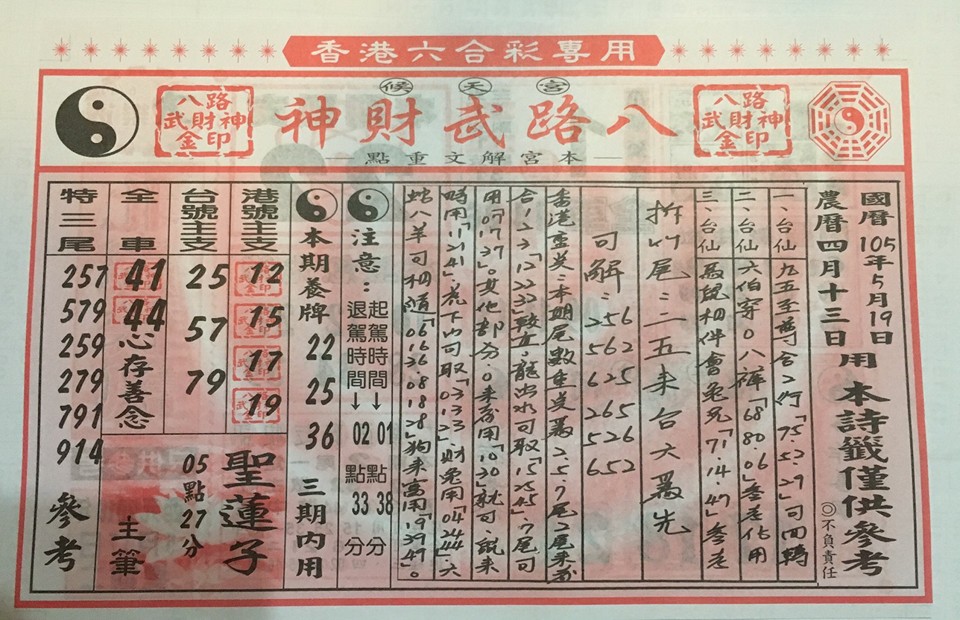 香港六合彩專用
八路武財神金印
宮天候
八路武財神
八路武財神金印
本宮解文重點
國曆105年5月19日
農曆四月十三日用
本詩籤僅供參考
◎不負責任
一、台仙九五至尊合2行「75.52.29」可回轉
二、台仙六伯穿0八褲「68 80.06」參差佔用
三、台仙 鼠相伴會兔兄「71.14.47」參差
拆竹尾二五来台大為先
可解:256 562 625 265 526 652
香港重点:本期尾數重点為2.5.7尾2尾来
合1.2.3「12 22 32」較 龍出水可取「15 25 45」.7尾可
用07.17.37。其他部分.0来 用「10.30」就可.鼠来
時用「11.21.41」花下山可取「03.13.23」.財兔用「04.24.44.六
蛇八羊可相隨「06 16 36 08 18 28」狗来高用「19 39 49」。
注意:
起駕時間→01點38分
退駕時間→02點33分
本期養牌 22 25 36 三期內用
港號主支 12 15 17 19
台號主支 25 57 79
聖蓮子
05點27分
全車 41 44 心存善念
主筆
特三尾 257 579 259 279 791 914 參考